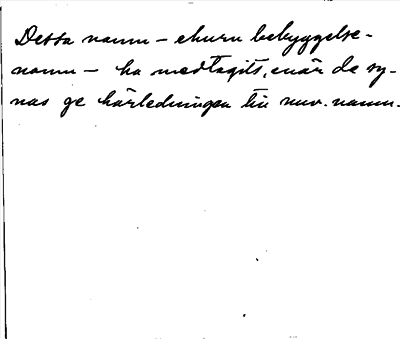 Dessa namn – ehuru bebyggelse-
namn – ha medtagits, enär de sy-
nas ge härledningen till nuv. namn.